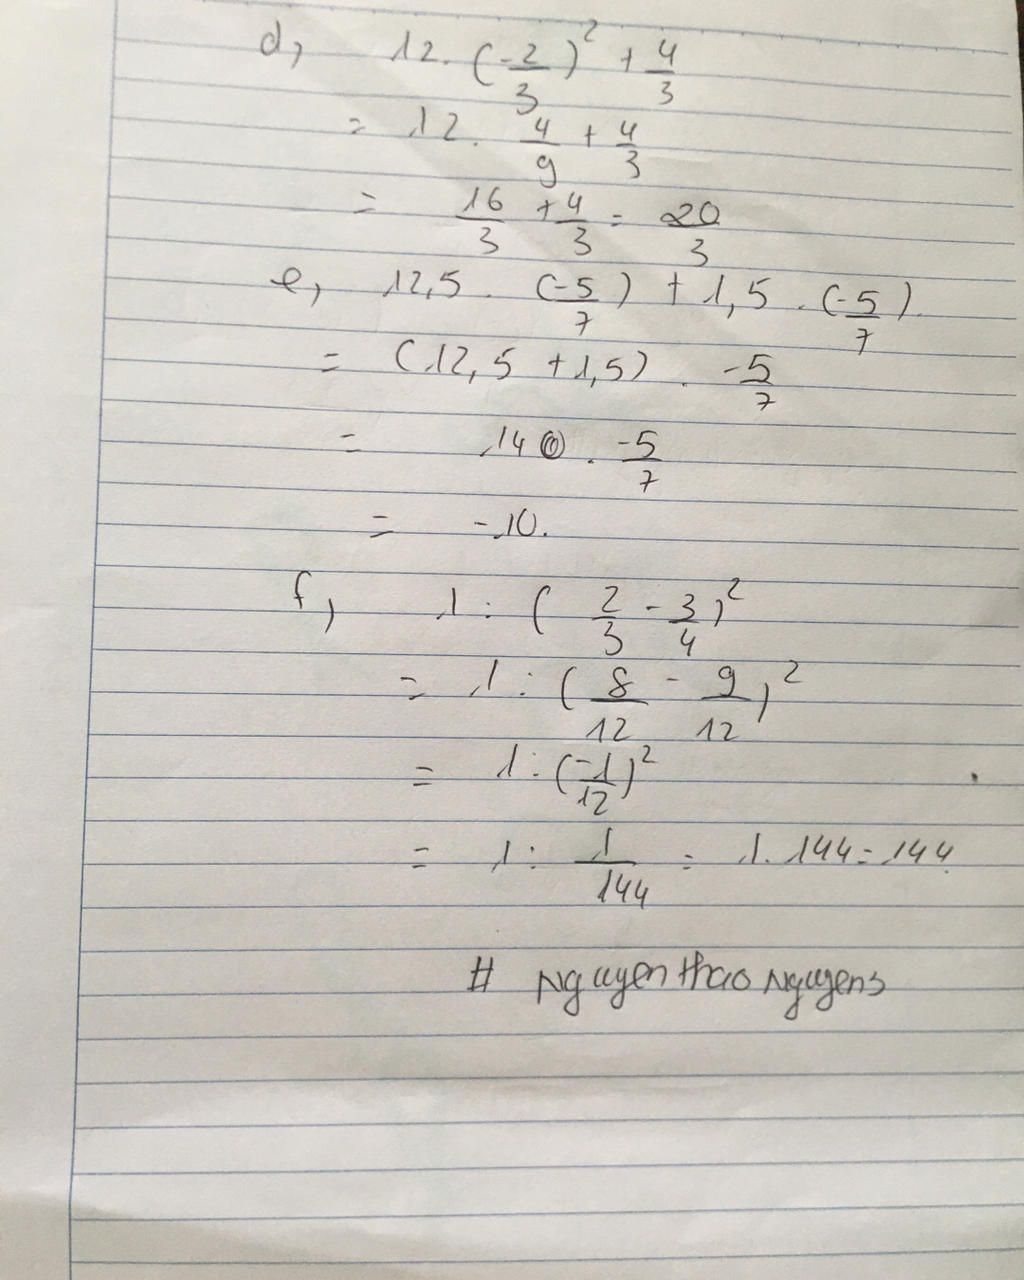 d, 12. (-2/3)² + 4/3
= 12. 4/9 + 4/3
= 16/3 + 4/3 = 20/3
e, 12,5 . (-5/7) + 1,5 . (-5/7).
= (12,5 + 1,5) . -5/7
= 14 . -5/7
= -10.
f, 1 : ( 2/3 - 3/4 )²
= 1 : ( 8/12 - 9/12 )²
= 1 : (-1/12)²
= 1 : 1/144 = 1. 144 = 144
# Nguyen thao Nguyens